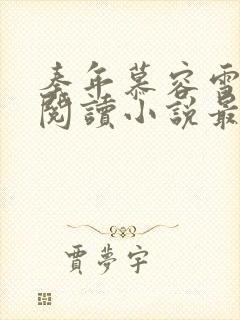 秦年慕容雪
閱讀小說最
賈夢宇